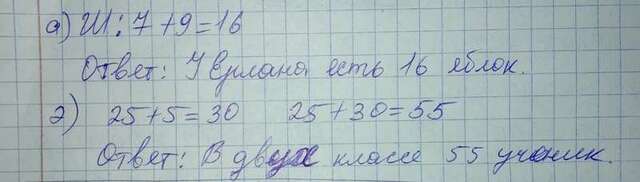 а) Ш: 7+9=16
Ответ: У Ерлана есть 16 яблок.
2) 25+5=30 25+30=55
Ответ: В двух классе 55 ученик.